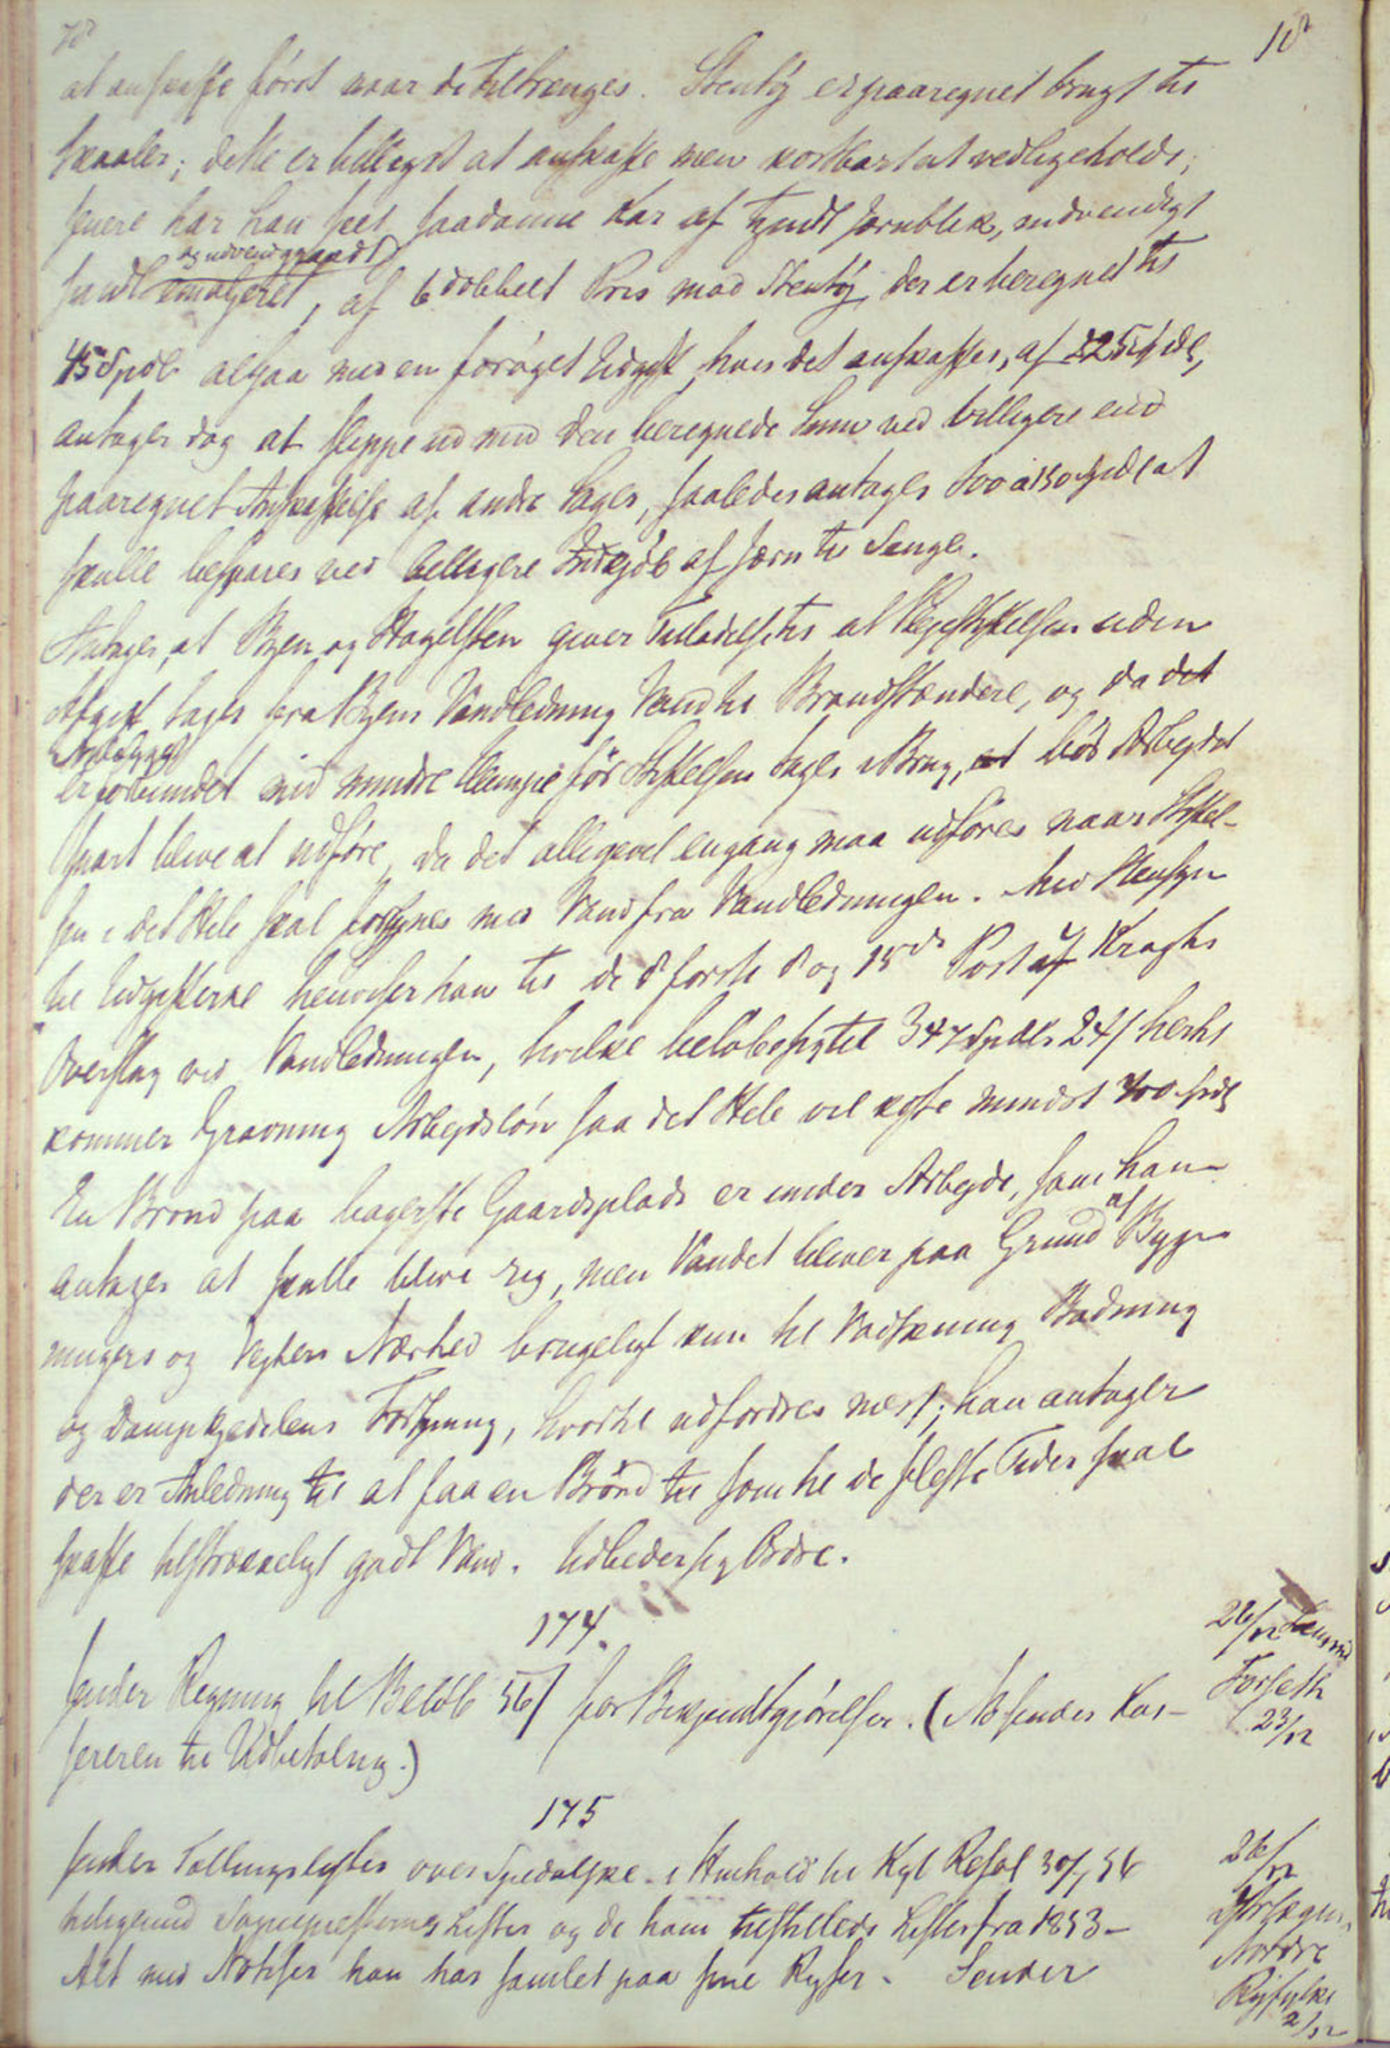 at anskaffe først naar de tiltrenges. Stentøj er paaregnet brugt til
Skaaler; dette er billigst at anskaffe men kostbart at vedligeholde;
senere har han seet saadanne Kar af tyndt Jernblik, indvendigt
og udvendig
hvidt emaljeret, af 6 dobbelt Pris mod Stentøj, der er beregnet til
45 Spdl altsaa med en forøget Udgift, hvis det anskaffes, af 225 Spdl,
antager dog at slippe ud med den beregnede Sum ved billigere end
paaregnet Anskaffelse af andre Sager, saaledes antages 100 a 150 Spdl at
skulle bespares ved billigere Indkjøb af Jern til Senge.
Antager, at Byen og Magistraten giver Tilladelse til at Plejestiftelsen uden
Afgift tages fra Byens Vandledning Vand til Brandstændere, og da det
Arbejdet
er forbundet med mindre Ulempe før Stiftelsen tages i Brug, bør Arbejdet
snart blive at udføre, da det alligevel engang maa udføres naar Stiftel-
sen i det Hele skal forsynes med Vand fra Vandledningen. Med Hensyn
til Udgifterne henviser han til de 8 første og 15de Post af Kraghs
Overslag ved Vandledningen, hvilke beløbe sig til 347 Spdlr 24 s hertil
kommer Gravning Arbejdsløn saa det Hele vil koste mindst 400 Spdl
En Brønd paa bagerste Gaardsplads er under Arbejde, som han
antager at skulle blive rig, men Vandet bliver paa Grund af Byg-
ningers og Vejens Nærhed brugeligt kun til Vadskning Badning
og Dampkjedelens Forsyning, hvortil udfordres mest; han antager
der er Anledning til at faa en Brønd til som til de fleste Tider skal
skaffe tilstrækkeligt godt Vand. Udbeder sig Ordre.
174.
26/12
sender Regning til Beløb 56 s for Bekjendtgjørelser. (Afsendes Kas-
Forseth
23/12
sereren til Udbetaling.)
175
sender Tællingslister over Spedalske i Henhold til Kgl Resol 30/7 56
26/12
tilligemed Sognepræsternes Lister og de ham tilstillede Lister fra 1853 –
Alt med Notiser han har samlet paa sine Rejser. Sender
Nordre
Ryfylke
2/12